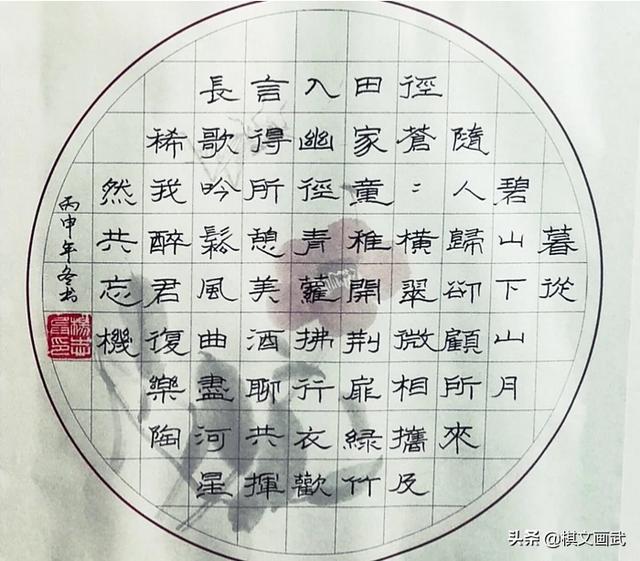 暮從
碧山下山月
隨人歸卻顧所來
徑蒼〻橫翠微相攜及
田家童稚開荊扉綠竹
入幽徑青蘿拂行衣歡
言得所憩美酒聊共揮
長歌吟鬆風曲盡河星
稀我醉君復樂陶
然共忘機
丙申年冬书
楊志
头条 @棋文画武